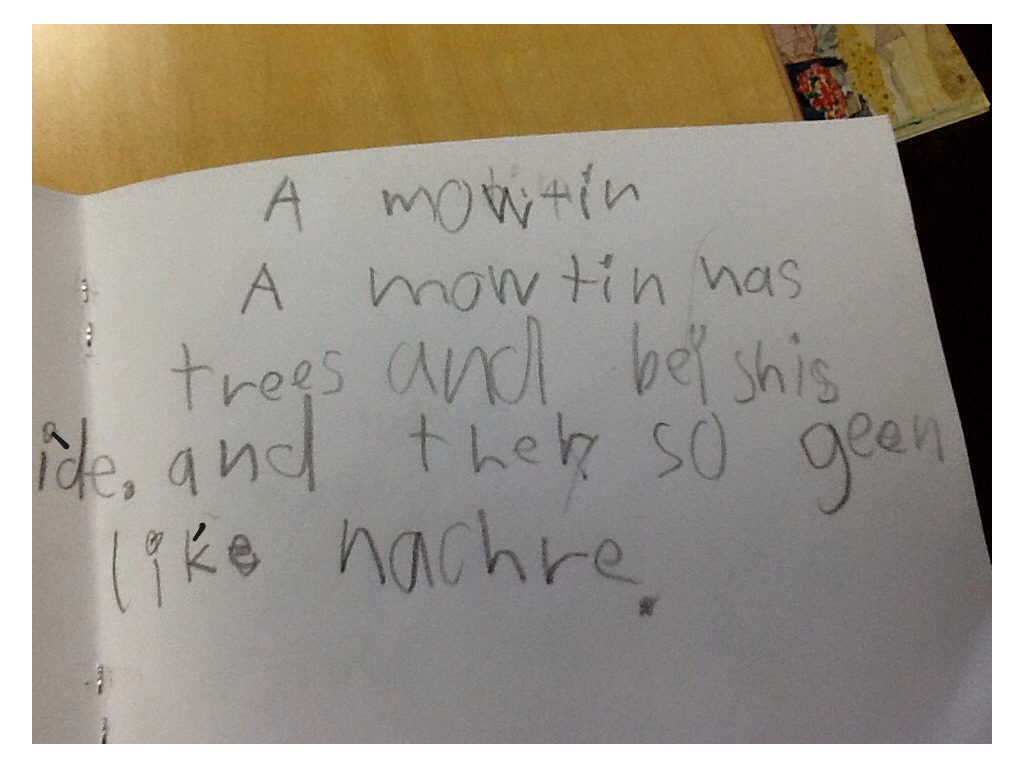 A mowtin
A mowtin has
trees and bei shis
ide. and ther so geen
like nachre.